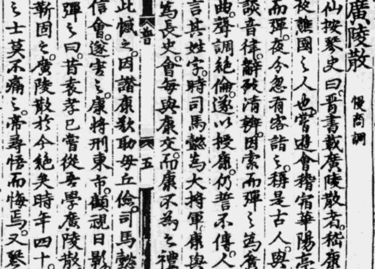 廣陵散 慢商調
仙按琴史曰晉書載廣陵散者嵇康
夜譙國之人也嘗遊會稽宿華陽亭
而彈夜今忽有客詣之稱是古人與
談音律辭致清辨因索而彈之爲廣
曲聲調絕倫遂以授康仍誓不傳人
言其姓字時司馬懿爲大將軍康與
爲長史會每與康交而康不爲之禮
五
此憾之因譖康欲助毋丘儉司馬懿
信會遂害之康將刑東市顧視日影
彈之曰昔袁孝已嘗從吾學廣陵散
靳固之廣陵散於今絕矣時年四十
之士莫不痛之常尋悟而悔焉又琴